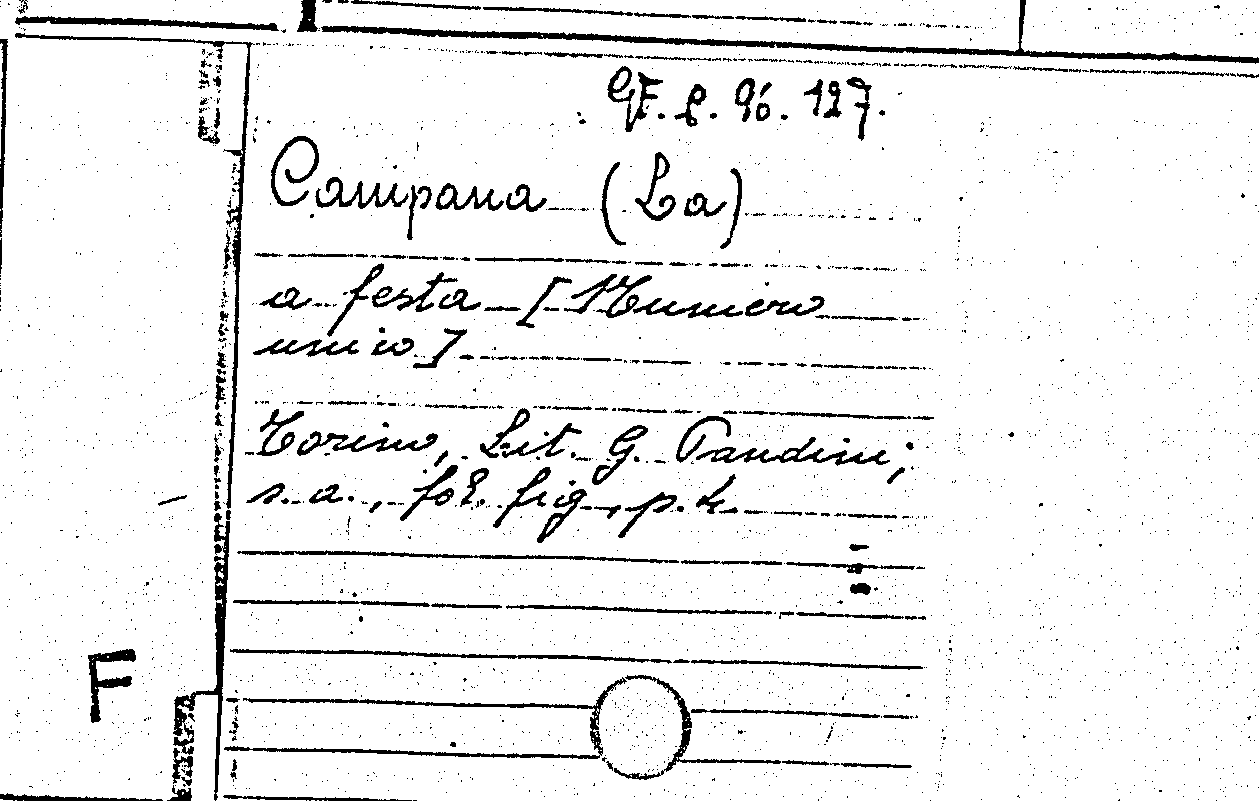 GF. C. 96. 127.
Campana (La)
a festa [Numero
unico]
Torino, Lit. G. Pandini,
s. a., fol. fig., p. 4.
F